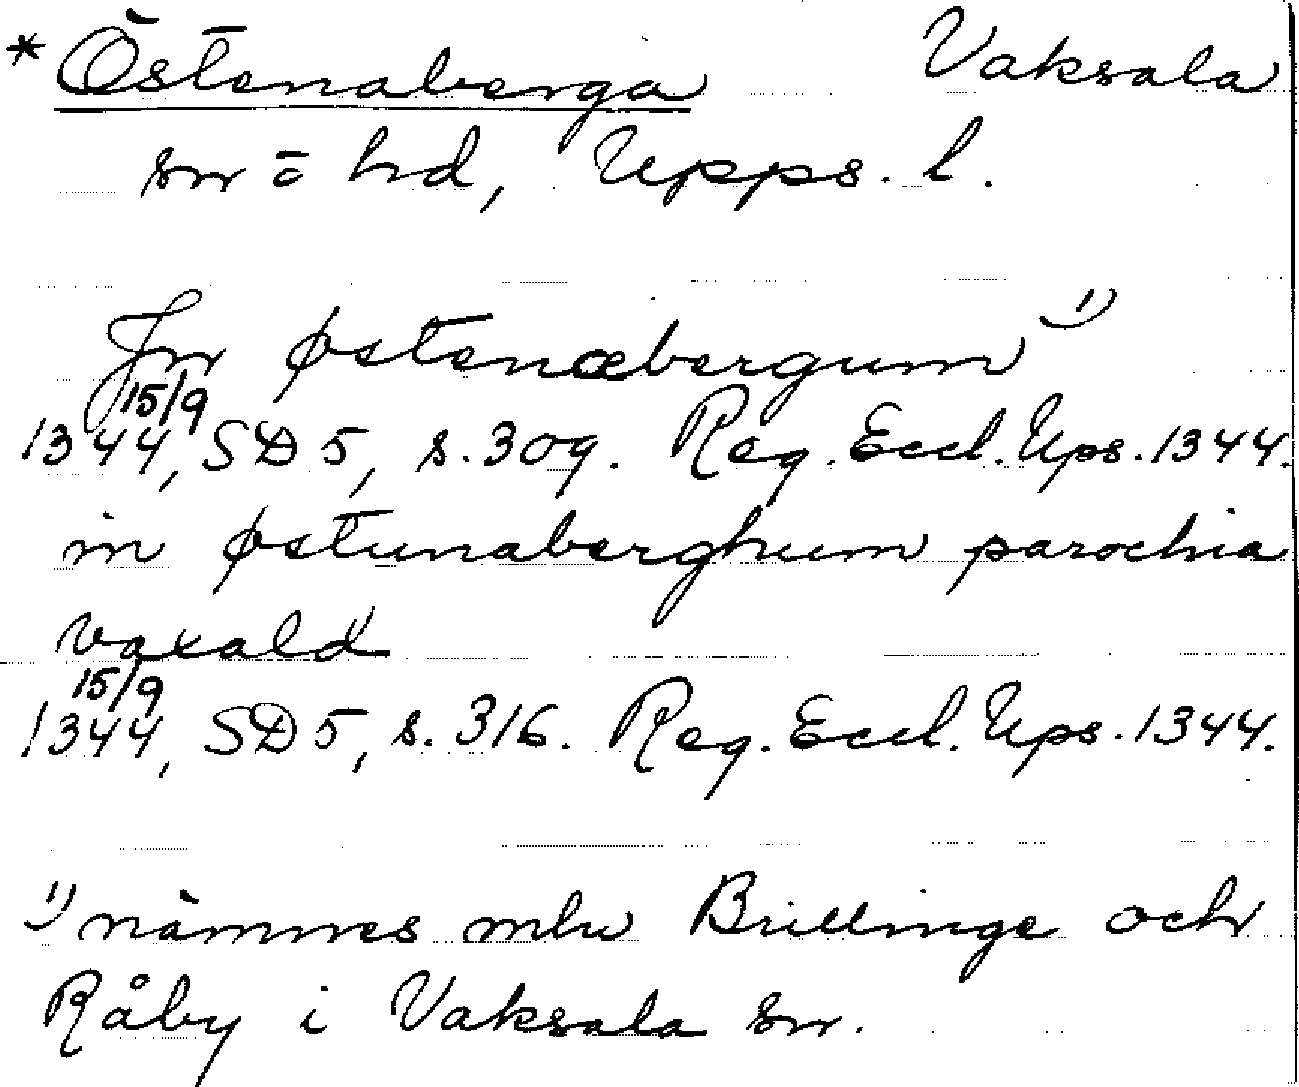 * Östenaberga Vaksala
sn o hd, Upps. l.
Jn østenæbergum 1)
15/9
1344, SD 5, s. 309. Reg. Eccl. Ups. 1344.
in østunaberghum parochia
vaxald
15/9
1344, SD 5, s. 316. Reg. Eccl. Ups. 1344.
1) nämnes mln Brillinge och
Råby i Vaksala sn.